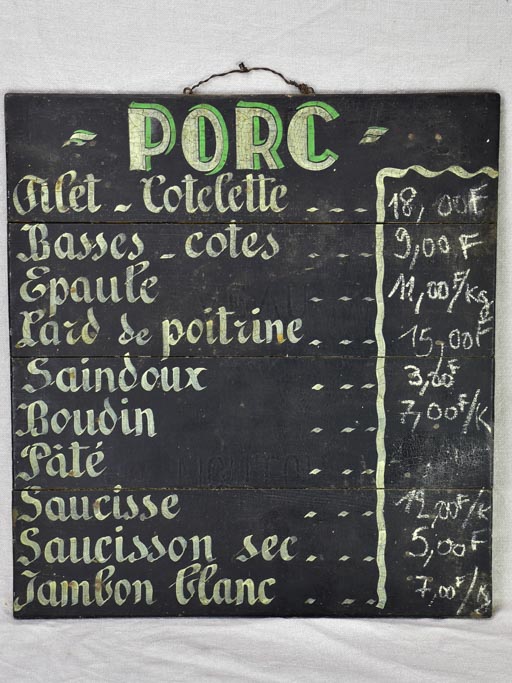 PORC
Filet - Cotelette .... 18,00F
Basses - cotes .... 9,00 F
Epaule .... 11,00F/Kg
Lard de poitrine .... 15,00F
Saindoux .... 3,00F
Boudin .... 7,00F/K
Pâté ....
Saucisse .... 12,00F/K
Saucisson sec .... 5,00F
Jambon blanc .... 7,00F/Kg